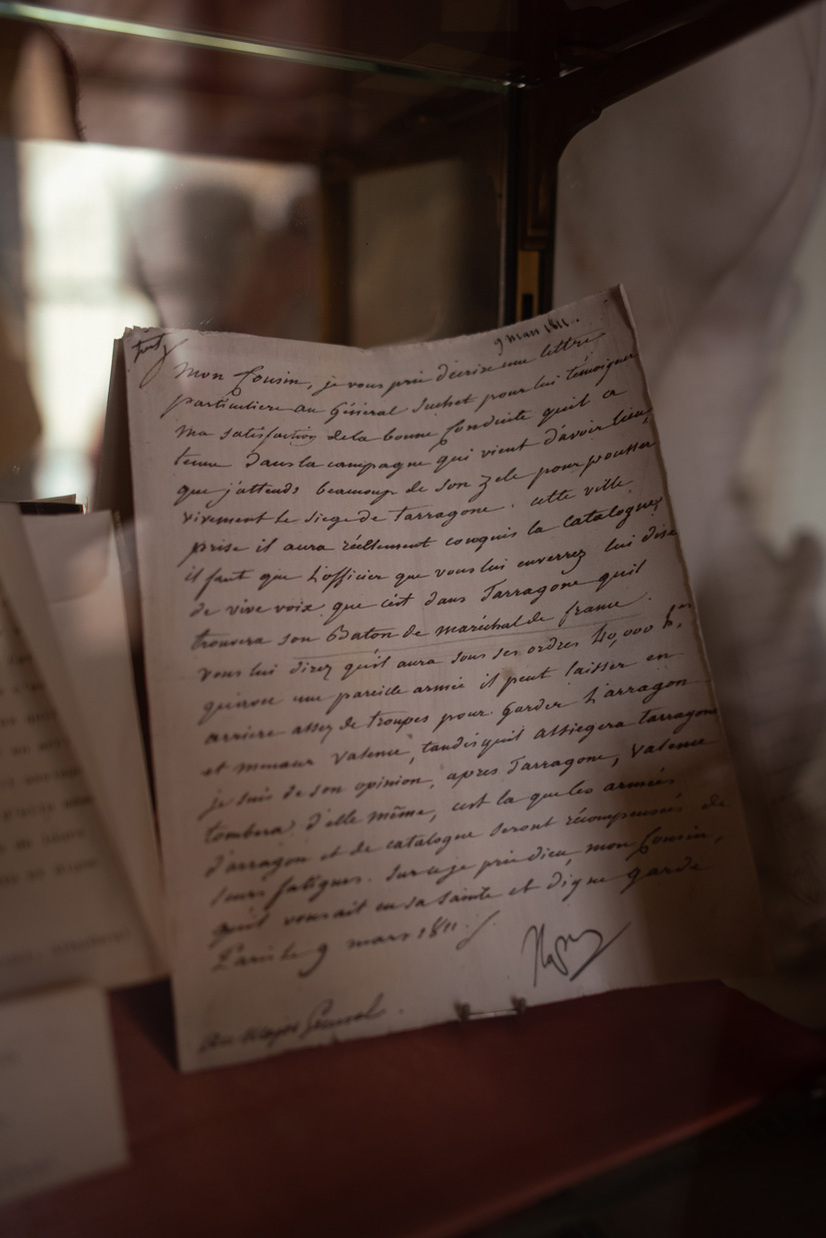 9 mars 1811.
Mon Cousin, je vous prie d'écrire une lettre
particuliere au Général Suchet pour lui témoigner
ma satisfaction dela bonne Conduite quil a
tenue dans la campagne qui vient d'avoir lieu
que j'attends beaucoup de son zele pour pousser
vivement le siege de Tarragone. cette ville
prise il aura réellement conquis la Catalogne,
il faut que L'officier que vous lui enverrez lui dise
de vive voix que c'est dans Tarragone quil
trouvera son Baton de maréchal de france.
vous lui direz qu'il aura sous ses ordres 40,000 h.es
qu'avec une pareille armée il peut laisser en
arriere assez de troupes pour Garder L'arragon
et menacer Valence, tandis qu'il Assiegera tarragone
je suis de son opinion, apres Tarragone, Valence
tombera d'elle même, c'est la que les armées
d'arragon et de catalogue seront récompensées de
leurs fatigues. Sur ce je prie dieu, mon Cousin,
qu'il vous ait en sa Sainte et digne garde
Paris le 9 mars 1811
Nap
Au Major Général.